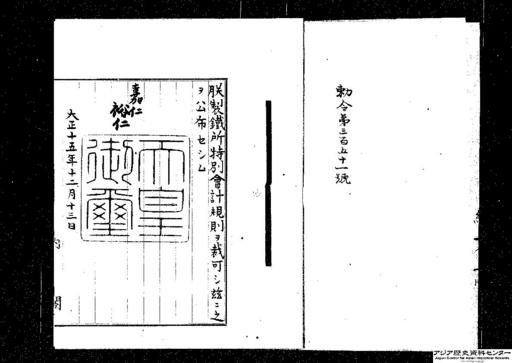 勅令第三百五十一號
朕製鐵所特別會計規則ヲ裁可シ茲ニ之
ヲ公布セシム
嘉仁
裕仁
天皇御璽
大正十五年十二月十三日
内閣
アジア歴史資料センター
Japan Center for Asian Historical Records